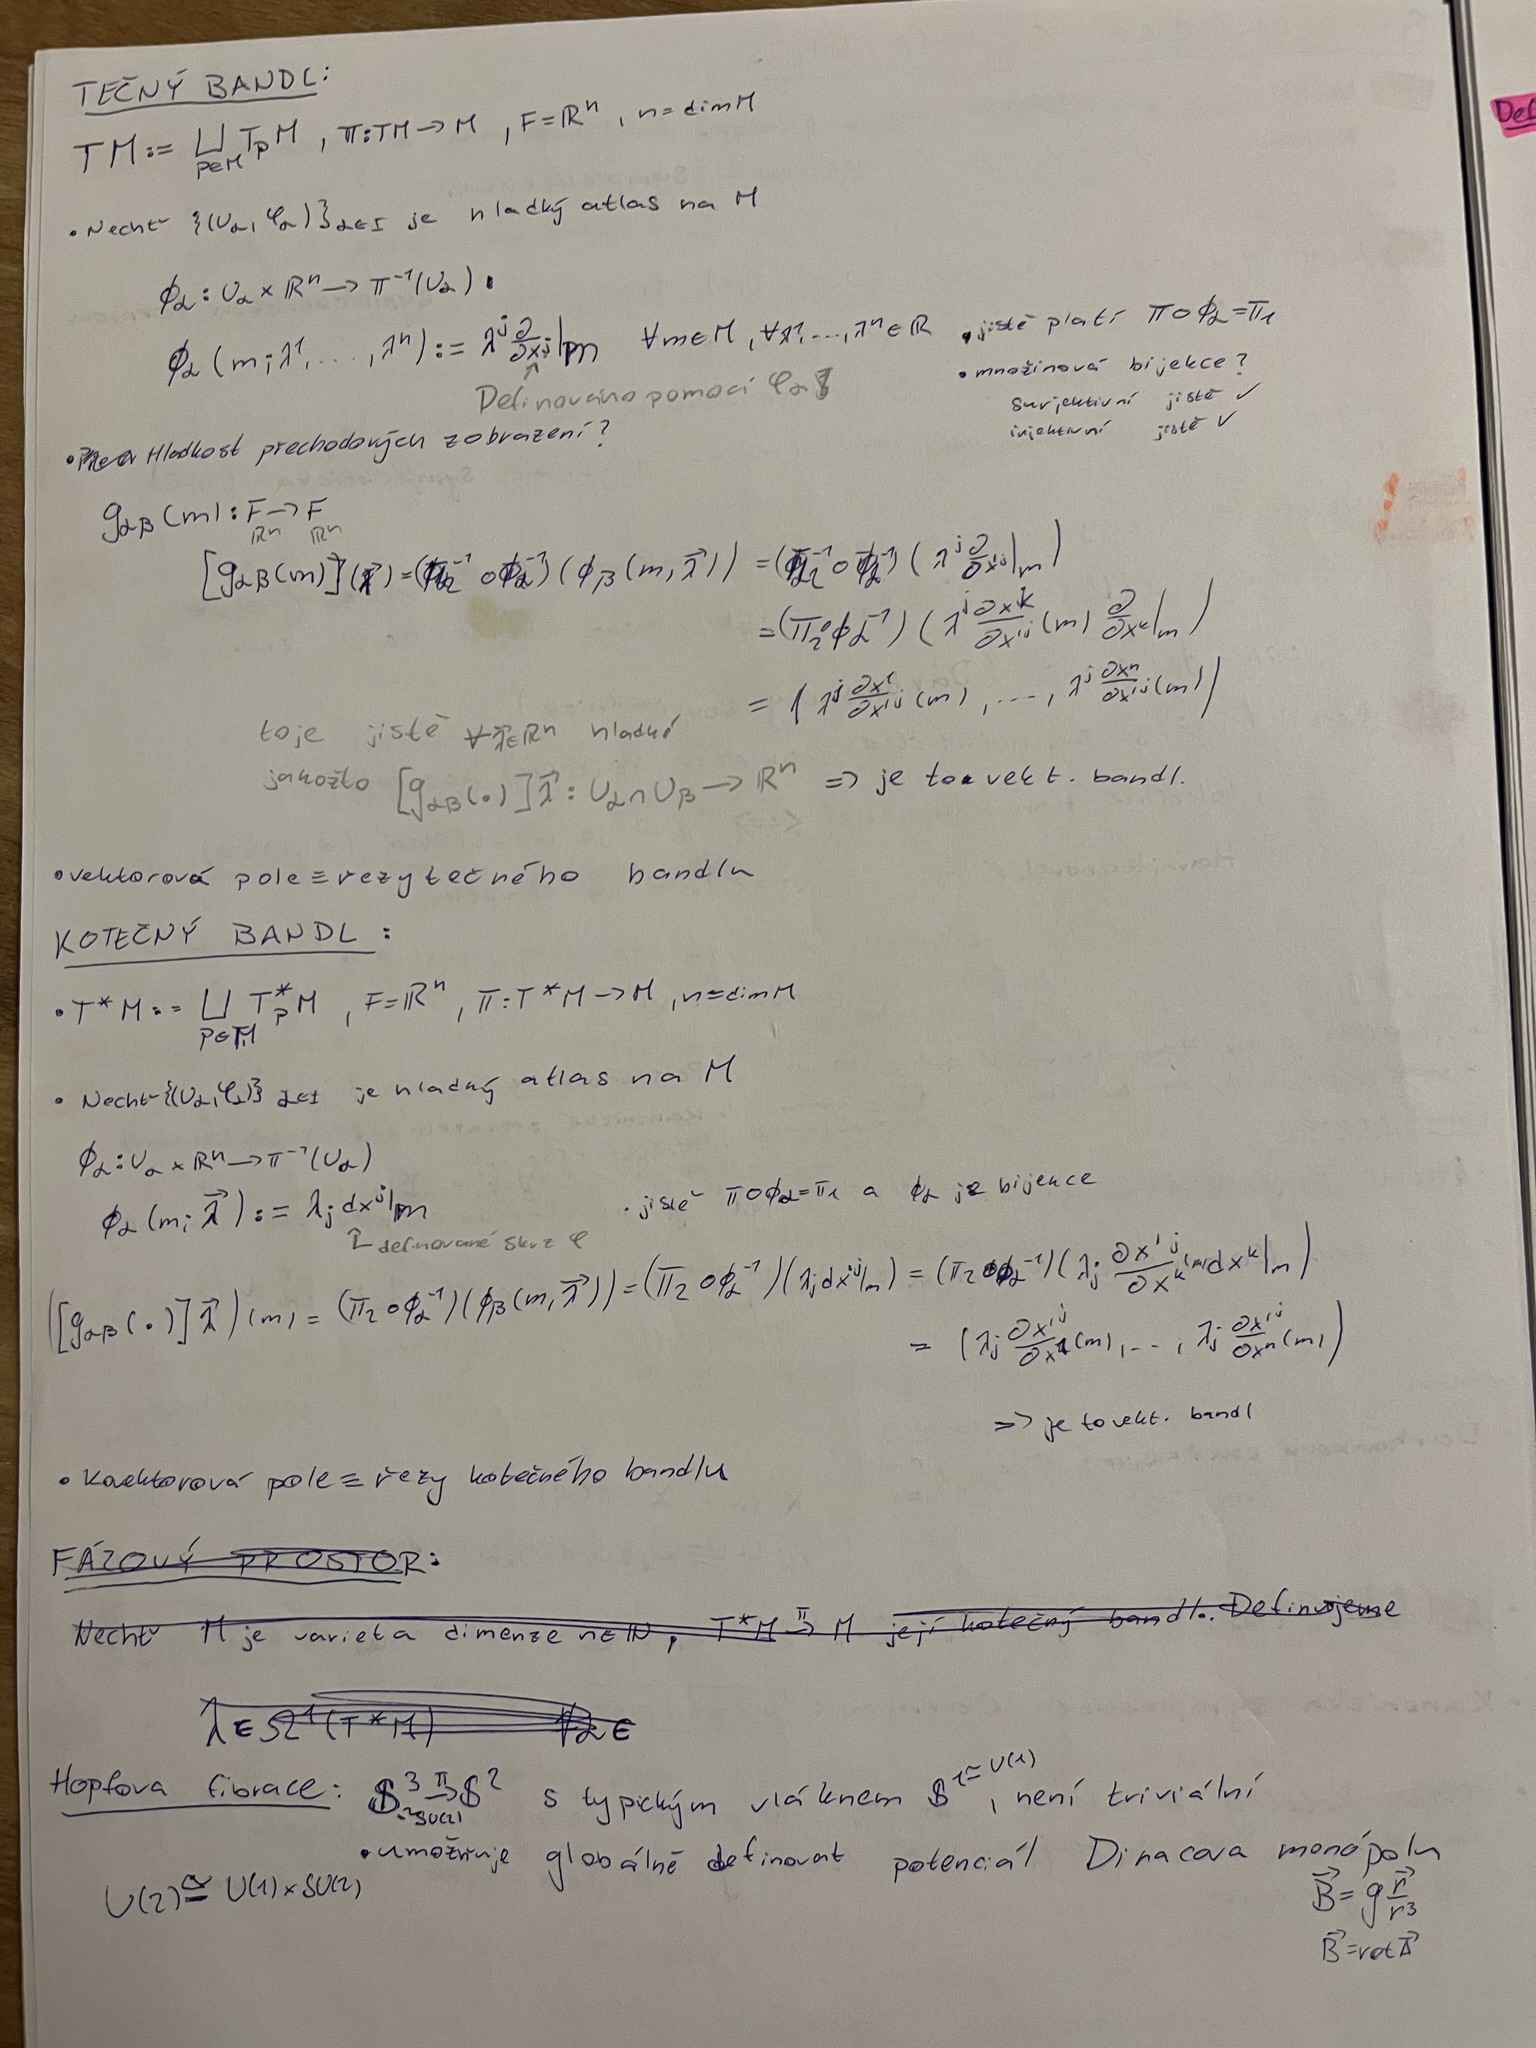 TEČNÝ BANDL:
TM := ⊔_{p∈M} T_pM , π: TM → M , F = ℝⁿ , n = dim M
• Nechť {(U_α, φ_α)}_{α∈I} je hladký atlas na M
ϕ_α : U_α × ℝⁿ → π⁻¹(U_α) .
ϕ_α (m; λ¹, ..., λⁿ) := λʲ ∂/∂xʲ|_m ∀m∈M, ∀λ¹, ..., λⁿ ∈ ℝ
Definováno pomocí φ_α
• jistě platí π∘ϕ_α = π₁
• množinová bijekce?
surjektivní jistě ✓
injektivní jistě ✓
• Hladkost přechodových zobrazení?
g_αβ (m) : F → F
ℝⁿ ℝⁿ
[g_αβ(m)](λ⃗) = (π₂ ∘ ϕ_α⁻¹)(ϕ_β (m, λ⃗)) = (π₂ ∘ ϕ_α⁻¹)(λʲ ∂/∂x'ʲ|_m)
= (π₂ ∘ ϕ_α⁻¹)(λʲ ∂xᵏ/∂x'ʲ (m) ∂/∂xᵏ|_m)
= (λʲ ∂x¹/∂x'ʲ (m), ..., λʲ ∂xⁿ/∂x'ʲ (m))
to je jistě ∀λ⃗∈ℝⁿ hladké
jakožto [g_αβ(•)]λ⃗ : U_α ∩ U_β → ℝⁿ => je to vekt. bandl.
• vektorová pole ≡ řezy tečného bandlu
KOTEČNÝ BANDL :
• T*M := ⊔_{p∈M} T*_pM , F = ℝⁿ , π: T*M → M , n = dim M
• Nechť {(U_α, φ_α)}_{α∈I} je hladký atlas na M
ϕ_α : U_α × ℝⁿ → π⁻¹(U_α)
ϕ_α (m; λ⃗) := λ_j dxʲ|_m • jistě π∘ϕ_α = π₁ a ϕ_α je bijekce
definované skrz φ
([g_αβ(•)]λ⃗)(m) = (π₂ ∘ ϕ_α⁻¹)(ϕ_β(m, λ⃗)) = (π₂ ∘ ϕ_α⁻¹)(λ_j dx'ʲ|_m) = (π₂ ∘ ϕ_α⁻¹)(λ_j ∂x'ʲ/∂xᵏ (m) dxᵏ|_m)
= (λ_j ∂x'ʲ/∂x¹ (m), ..., λ_j ∂x'ʲ/∂xⁿ (m))
=> je to vekt. bandl
• Kovektorová pole ≡ řezy kotečného bandlu
FÁZOVÝ PROSTOR:
Nechť M je varieta dimenze n∈ℕ, T*M →^π M její kotečný bandl. Definujeme
λ ∈ Ω¹(T*M) ∀α ∈
Hopfova fibrace: 𝕊³ →^π 𝕊² s typickým vláknem 𝕊¹ ≅ U(1) , není triviální
≅ SU(2)
• umožňuje globálně definovat potenciál Diracova monópolu
U(2) ≅ U(1) × SU(2)
B⃗ = g r⃗/r³
B⃗ = rot A⃗
Def